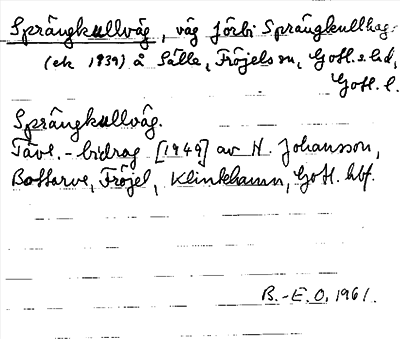 Sprängkullväg, väg förbi Sprängkullhag:
(ek 1939) å Sälle, Fröjels sn, Gotl. s. hd,
Gotl. l.
Sprängkullväg.
Tävl.-bidrag [1949] av H. Johansson,
Bottarve, Fröjel, Klintehamn, Gotl. hbf.
B.-E. O. 1961.